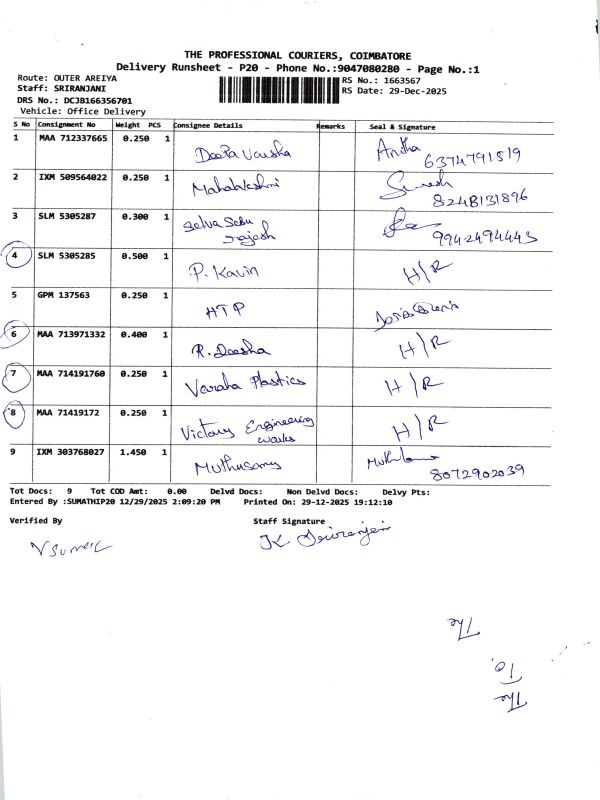 THE PROFESSIONAL COURIERS, COIMBATORE
Delivery Runsheet - P20 - Phone No.:9047080280 - Page No.:1
Route: OUTER AREIYA
RS No.: 1663567
Staff: SRIRANJANI
RS Date: 29-Dec-2025
DRS No.: DCJB166356701
Vehicle: Office Delivery
S No Consignment No Weight PCS Consignee Details Remarks Seal & Signature
1 MAA 712337665 0.250 1 Deepa Varsha Anitha
6374791519
2 IXM 509564022 0.250 1 Mahalakshmi Suresh
8248131896
3 SLM 5305287 0.300 1 Selva Sebu
rajesh
9942494443
4 SLM 5305285 0.500 1 P. Kavin H/R
5 GPM 137563 0.250 1 HTP
6 MAA 713971332 0.400 1 R. Deesha H/R
7 MAA 714191760 0.250 1 Varaha Plastics H/R
8 MAA 71419172 0.250 1 Victory Engineering
works H/R
9 IXM 303768027 1.450 1 Muthusamy
8072902039
Tot Docs: 9 Tot COD Amt: 0.00 Delvd Docs: Non Delvd Docs: Delvy Pts:
Entered By :SUMATHIP20 12/29/2025 2:09:20 PM Printed On: 29-12-2025 19:12:10
Verified By Staff Signature
K. Sriranjani
The
To
The